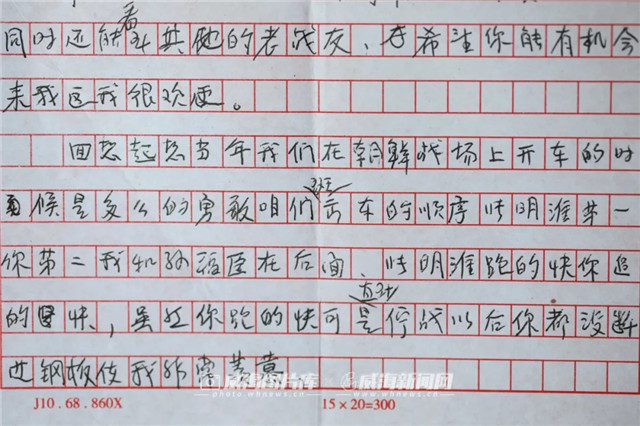 同时还能看到其他的老战友、也希望你能有机会
来我区我很欢迎。
回想起想当年我们在朝鲜战场上开车的时
候是多么的勇敢咱们班出车的顺序张明淮第一
你第二我和孙福臣在后面、张明淮跑的快你追
的更快，虽然你跑的快可是直到停战以后你都没断
过钢板使我非常羡慕
威海图片库 威海新闻网
photo.whnews.cn www.whnews.cn
J10.68.860X 15×20=300